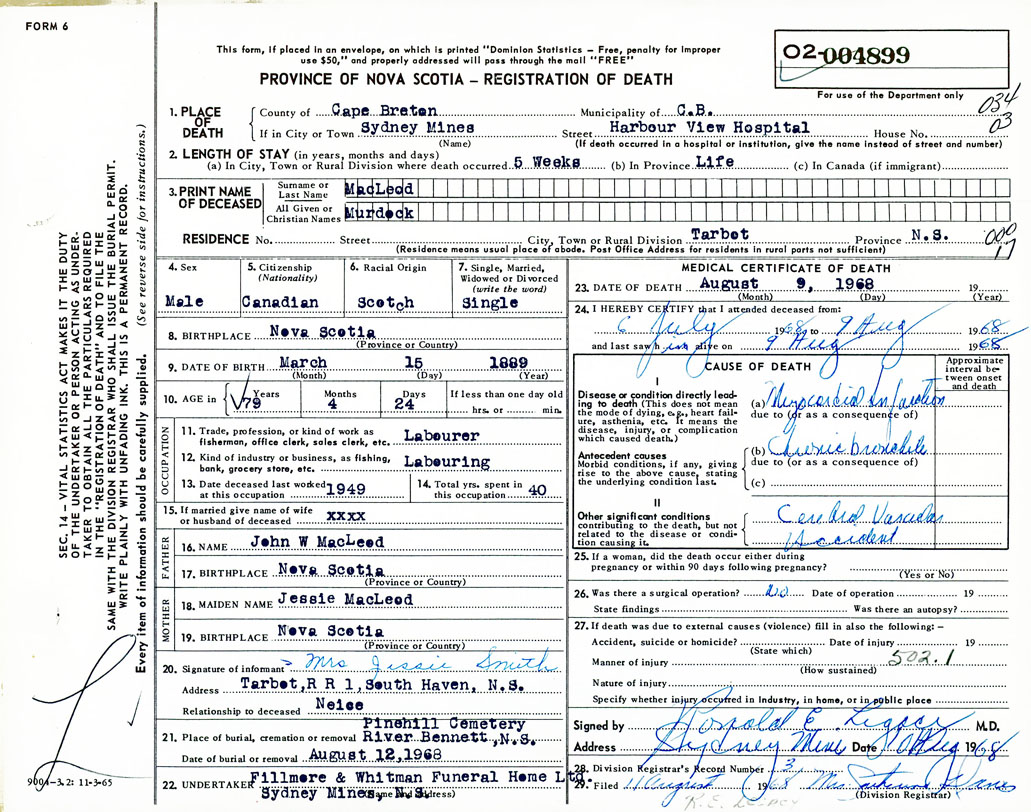 FORM 6
This form, if placed in an envelope, on which is printed "Dominion Statistics – Free, penalty for improper
use $50," and properly addressed will pass through the mail "FREE"
PROVINCE OF NOVA SCOTIA – REGISTRATION OF DEATH
02-004899
For use of the Department only
034
03
1. PLACE OF DEATH
County of Cape Breton Municipality of C.B.
If in City or Town Sydney Mines Street Harbour View Hospital House No.
(Name) (If death occurred in a hospital or institution, give the name instead of street and number)
2. LENGTH OF STAY (in years, months and days)
(a) In City, Town or Rural Division where death occurred 5 Weeks (b) In Province Life (c) In Canada (if immigrant)
3. PRINT NAME OF DECEASED
Surname or Last Name MacLeod
All Given or Christian Names Murdock
RESIDENCE No. Street City, Town or Rural Division Tarbot Province N.S.
(Residence means usual place of abode. Post Office Address for residents in rural parts not sufficient)
000
17
4. Sex Male
5. Citizenship (Nationality) Canadian
6. Racial Origin Scotch
7. Single, Married, Widowed or Divorced (write the word) Single
8. BIRTHPLACE Nova Scotia
(Province or Country)
9. DATE OF BIRTH March 15 1889
(Month) (Day) (Year)
10. AGE in Years 79 Months 4 Days 24 If less than one day old hrs. or min.
OCCUPATION
11. Trade, profession, or kind of work as fisherman, office clerk, sales clerk, etc. Labourer
12. Kind of industry or business, as fishing, bank, grocery store, etc. Labouring
13. Date deceased last worked at this occupation 1949
14. Total yrs. spent in this occupation 40
15. If married give name of wife or husband of deceased xxxx
FATHER
16. NAME John W MacLeod
17. BIRTHPLACE Nova Scotia
(Province or Country)
MOTHER
18. MAIDEN NAME Jessie MacLeod
19. BIRTHPLACE Nova Scotia
(Province or Country)
20. Signature of informant Mrs Jessie Smith
Address Tarbot, R R 1, South Haven, N.S.
Relationship to deceased Neice
21. Place of burial, cremation or removal Pinehill Cemetery River Bennett, N.S.
Date of burial or removal August 12, 1968
22. UNDERTAKER Fillmore & Whitman Funeral Home Ltd.
Sydney Mines, N.S.
MEDICAL CERTIFICATE OF DEATH
23. DATE OF DEATH August 9, 1968 19
(Month) (Day) (Year)
24. I HEREBY CERTIFY that I attended deceased from:
6 July 1968 to 9 Aug 1968
and last saw him alive on 9 Aug 1968
CAUSE OF DEATH
Approximate interval between onset and death
I
Disease or condition directly leading to death (This does not mean the mode of dying, e.g., heart failure, asthenia, etc. It means the disease, injury, or complication which caused death.)
(a) Myocardial Infarction
due to (or as a consequence of)
Antecedent causes
Morbid conditions, if any, giving rise to the above cause, stating the underlying condition last.
(b) Chronic bronchitis
due to (or as a consequence of)
(c)
II
Other significant conditions
contributing to the death, but not related to the disease or condition causing it.
Cerebral Vascular
Accident
25. If a woman, did the death occur either during
pregnancy or within 90 days following pregnancy?
(Yes or No)
26. Was there a surgical operation? No Date of operation 19
State findings Was there an autopsy?
27. If death was due to external causes (violence) fill in also the following: –
Accident, suicide or homicide? Date of injury 19
(State which)
Manner of injury 502.1
(How sustained)
Nature of injury
Specify whether injury occurred in Industry, in home, or in public place
Signed by M.D.
Address Sydney Mines Date Aug 1968
28. Division Registrar's Record Number 3
29. Filed 11 August 1968 Mrs
(Division Registrar)
SEC. 14 – VITAL STATISTICS ACT MAKES IT THE DUTY
OF THE UNDERTAKER OR PERSON ACTING AS UNDER-
TAKER TO OBTAIN ALL THE PARTICULARS REQUIRED
IN THE "REGISTRATION OF DEATH" AND TO FILE THE
SAME WITH THE DIVISION REGISTRAR WHO SHALL ISSUE THE BURIAL PERMIT.
WRITE PLAINLY WITH UNFADING INK. THIS IS A PERMANENT RECORD.
Every item of information should be carefully supplied. (See reverse side for instructions.)
900A-3.2: 11-3-65